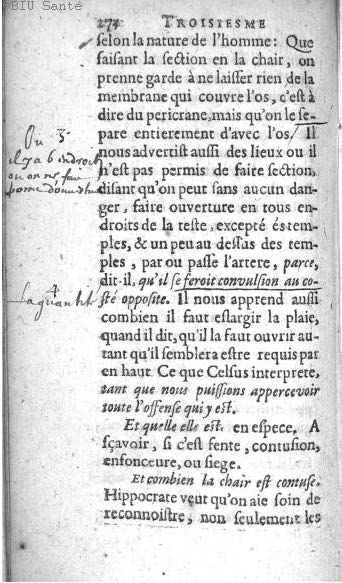 BIU Santé
274 TROISIESME
selon la nature de l'homme: Que
faisant la section en la chair, on
prenne garde à ne laisser rien de la
membrane qui couvre l'os, c'est à
dire du pericrane, mais qu'on le se-
pare entierement d'avec l'os/ Il
nous advertist aussi des lieux ou il
n'est pas permis de faire section,
disant qu'on peut sans aucun dan-
ger, faire ouverture en tous en-
droits de la teste, excepté és tem-
ples, & un peu au dessus des tem-
ples, par ou passe l'artere, parce,
dit-il, qu'il se feroit convulsion au co-
sté opposite. Il nous apprend aussi
combien il faut eslargir la plaie,
quand il dit, qu'il la faut ouvrir au-
tant qu'il semblera estre requis par
en haut. Ce que Celsus interprete,
tant que nous puissions appercevoir
toute l'offense qui y est.
Et quelle elle est. en espece. A
sçavoir, si c'est fente, contusion,
enfonceure, ou siege.
Et combien la chair est contuse.
Hippocrate veut qu'on aie soin de
reconnoistre, non seulement les
Ou 3
il y a 6 endroit
ou on ne fait